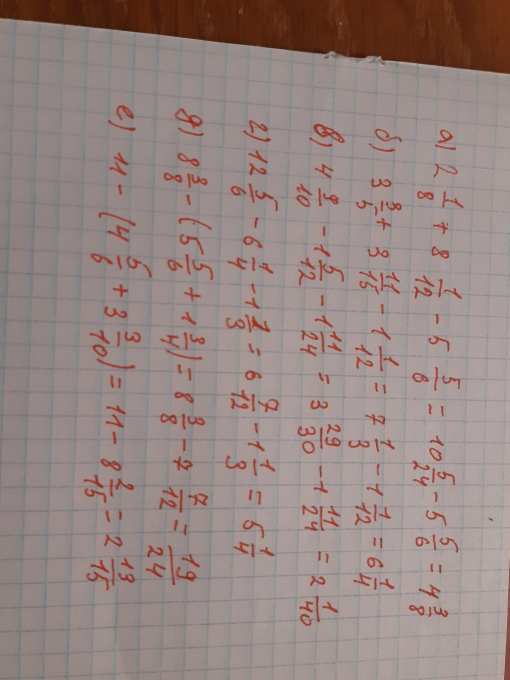 а) 2 1/8 + 8 1/12 - 5 5/6 = 10 5/24 - 5 5/6 = 4 3/8
б) 3 3/5 + 3 11/15 - 1 1/12 = 7 1/3 - 1 1/12 = 6 1/4
в) 4 9/10 - 1 5/12 - 1 11/24 = 3 29/30 - 1 11/24 = 2 1/40
г) 12 5/6 - 6 1/4 - 1 1/3 = 6 7/12 - 1 1/3 = 5 1/4
д) 8 3/8 - (5 5/6 + 1 3/4) = 8 3/8 - 7 7/12 = 19/24
е) 11 - (4 5/6 + 3 3/10) = 11 - 8 2/15 = 2 13/15